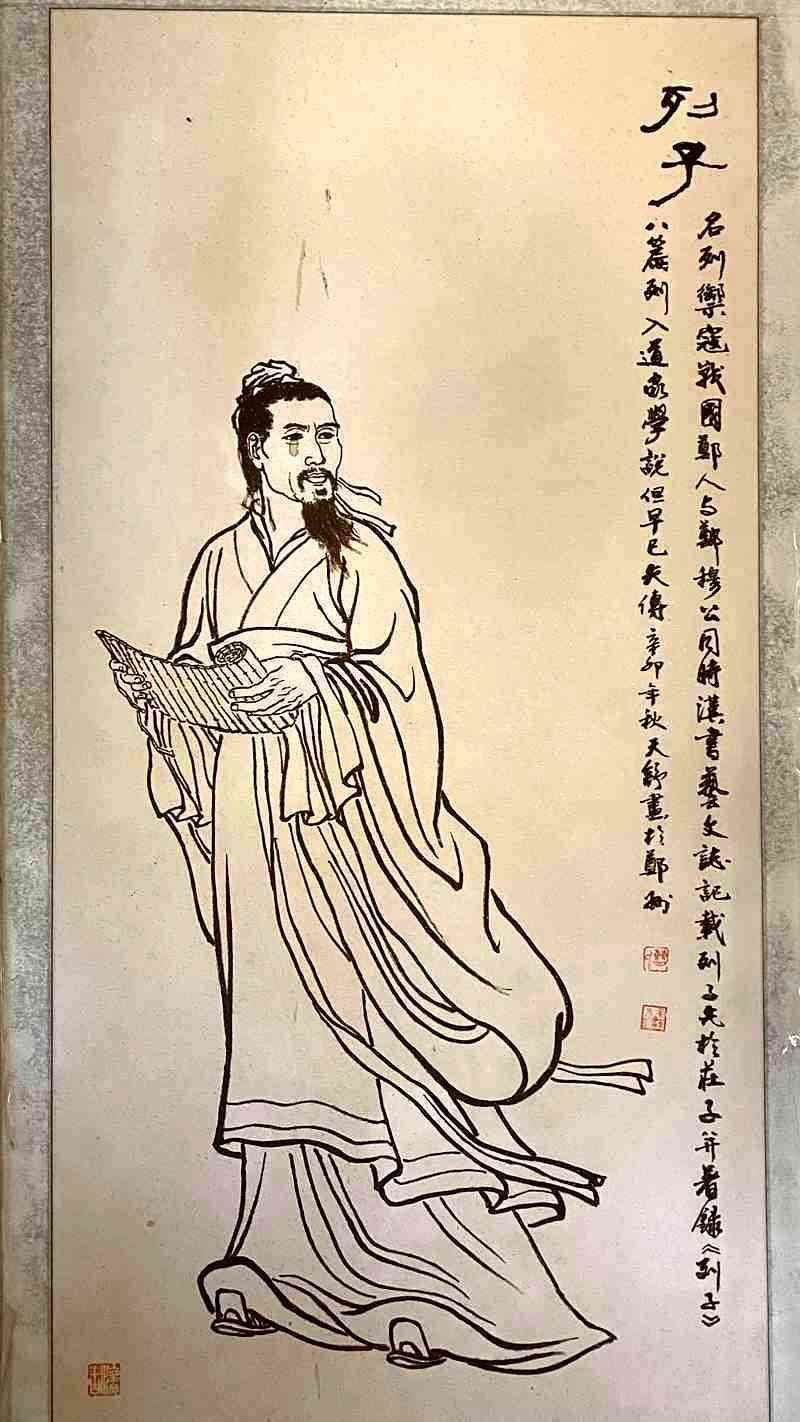 列子
名列禦寇戰國鄭人与鄭穆公同時漢書藝文誌記載列子先於莊子并著錄《列子》
八篇列入道家學說但早已失傳辛卯年秋天舒畫於鄭州